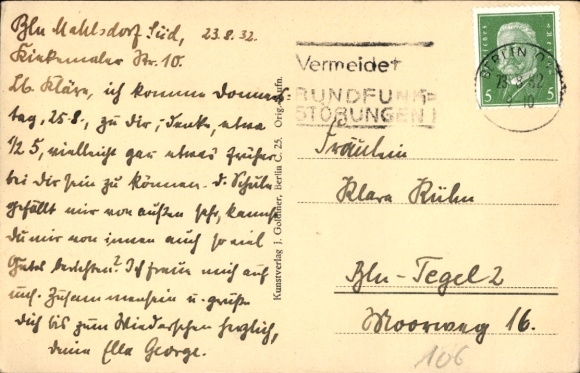 Bln Mahlsdorf Süd, 23.8.32.
Kiekemaler Str. 10.
Lb. Kläre, ich komme Donners-
tag, 25.8., zu dir, denke, etwa
1/2 5, vielleicht gar etwas früher
bei dir sein zu können. d. Schule
gefällt mir von außen sehr, kannst
du mir von innen auch so viel
Gutes berichten? Ich freue mich auf
uns. Zusammensein u. grüße
dich bis zum Wiedersehen herzlich,
deine Ella George.
Kunstverlag J. Goldiner, Berlin C. 25. Orig.-Aufn.
Vermeidet
RUNDFUNK=
STÖRUNGEN!
BERLIN
23.8.32
10
5 5
Fräulein
Klara Kühn
Bln-Tegel 2
Moorweg 16.
106